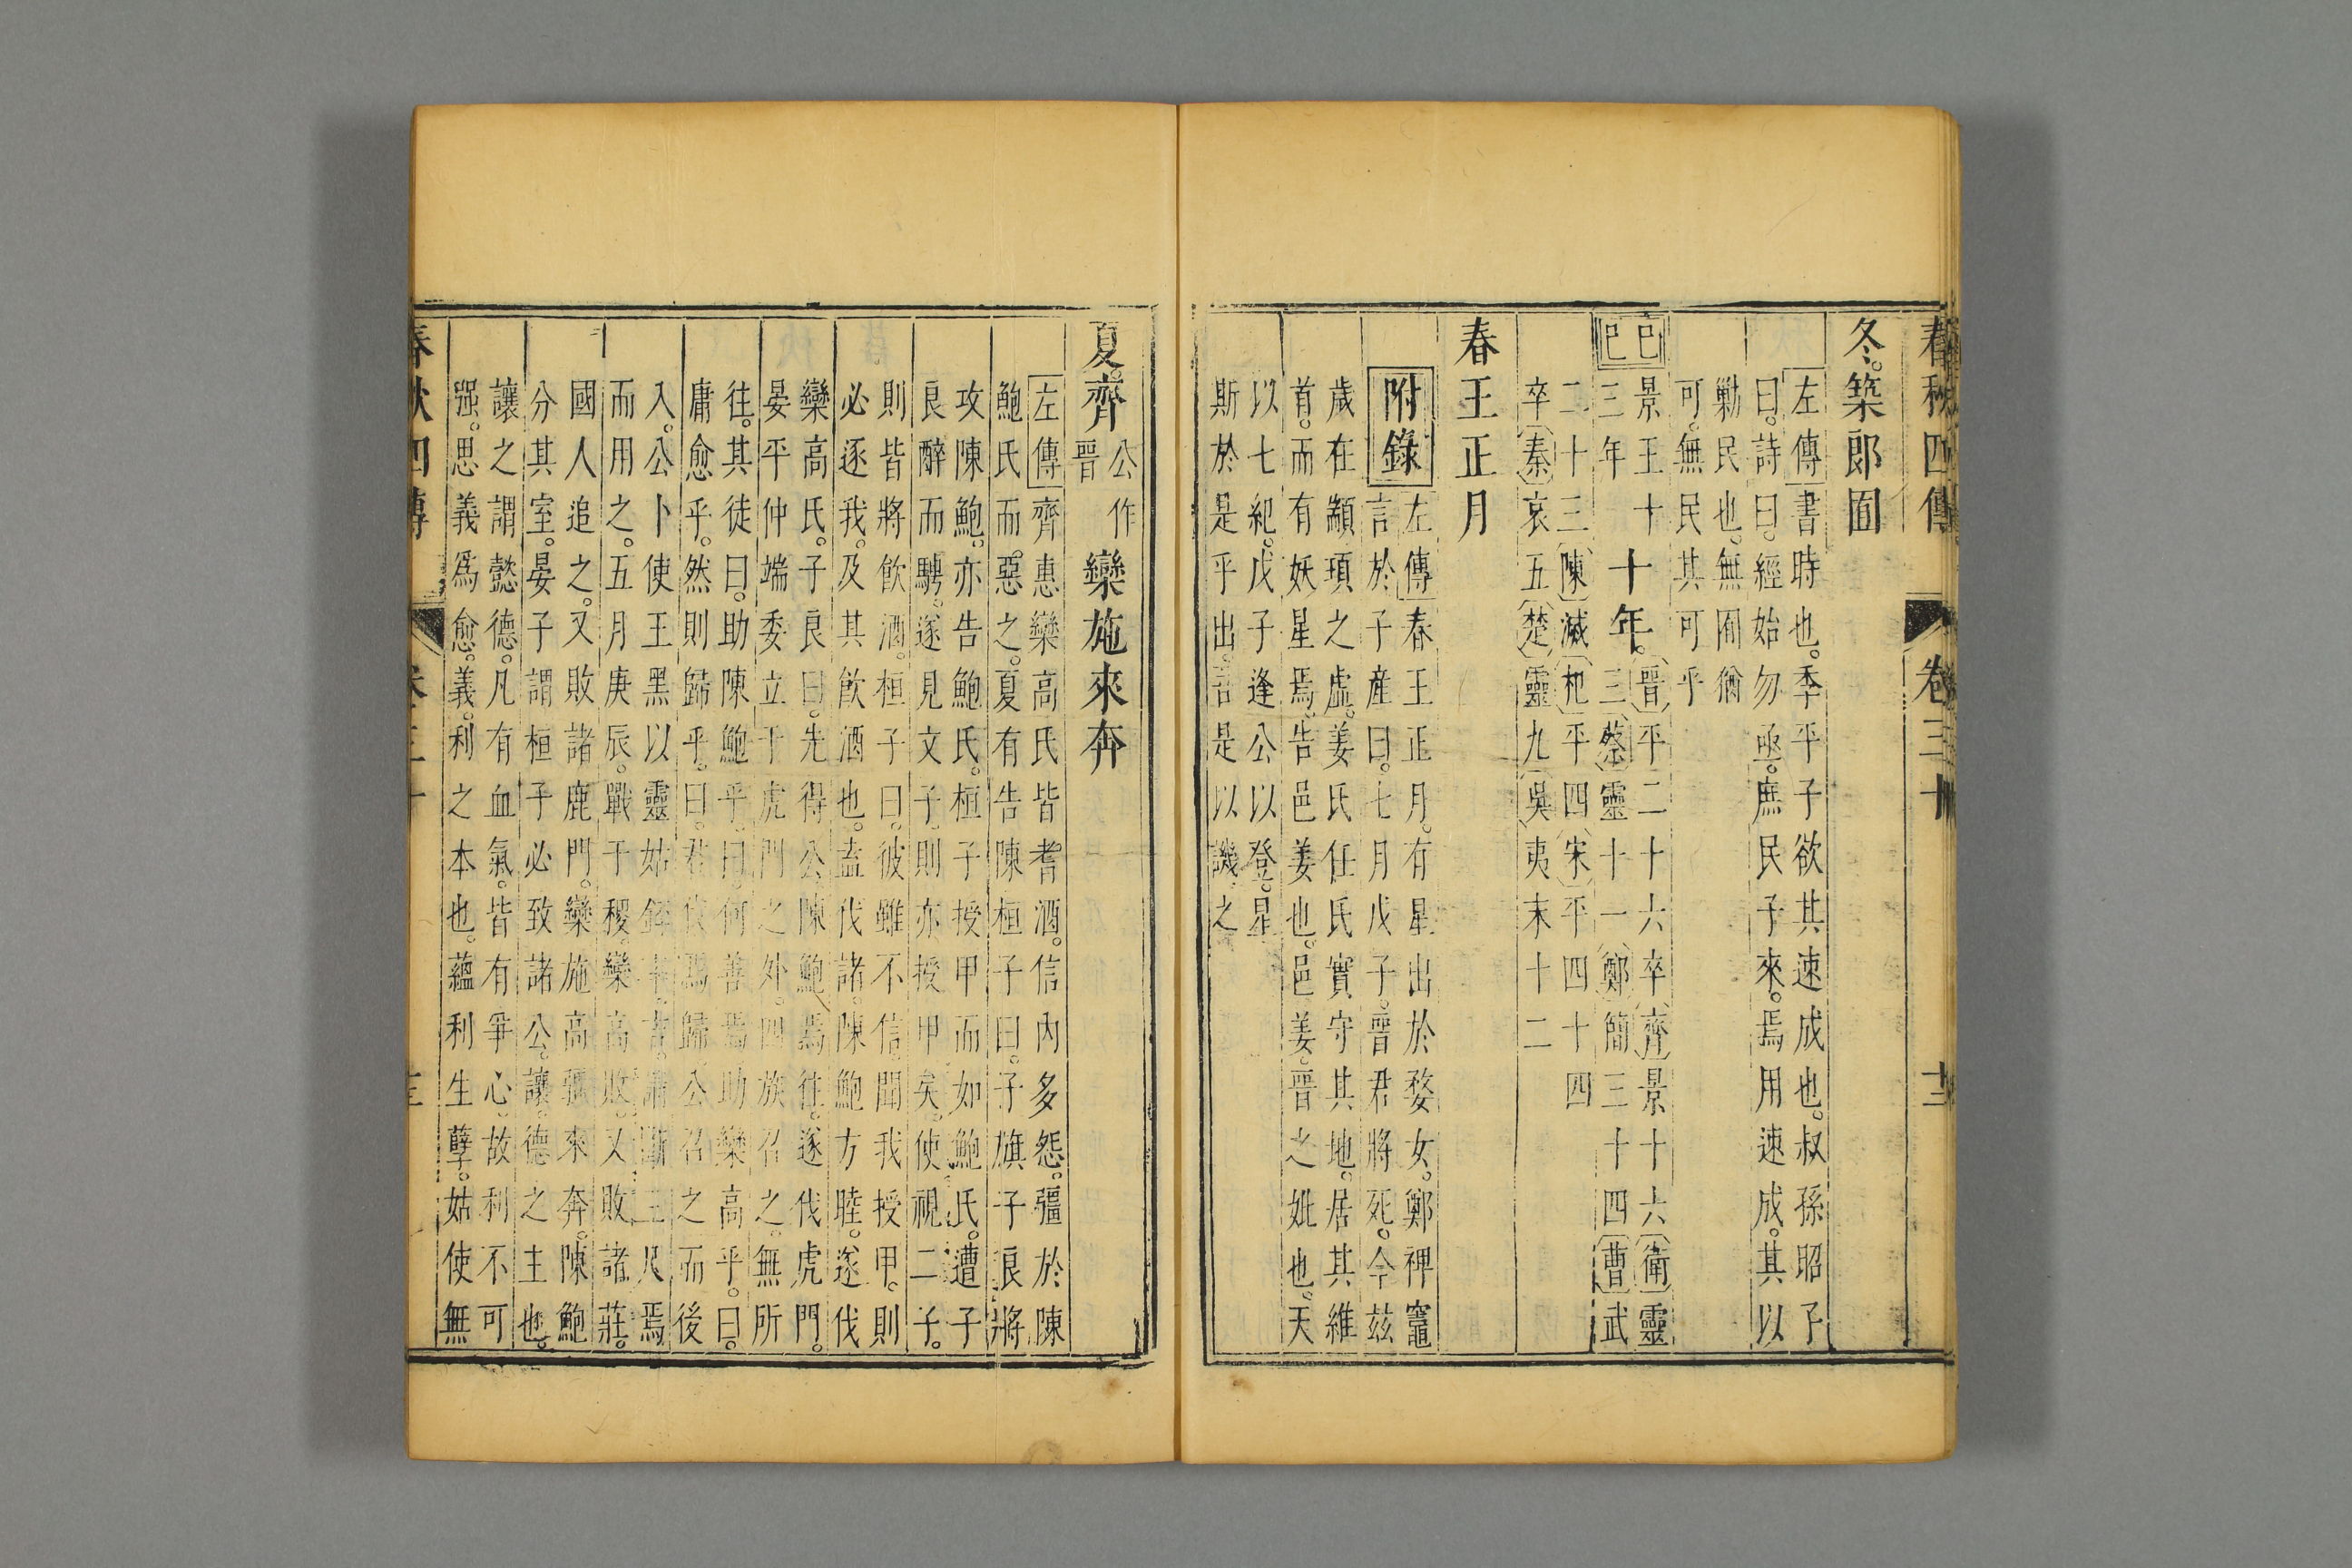 春秋四傳 卷三十 十二
冬。築郎囿
左傳書時也。季平子欲其速成也。叔孫昭子
曰。詩曰。經始勿亟。庶民子來。焉用速成。其以
勦民也。無囿猶
可。無民其可乎
景王十
三年
十年。
晉平二十六卒齊景十六衛靈
三蔡靈十一鄭簡三十四曹武
二十三陳滅杞平四宋平四十四
卒秦哀五楚靈九吳夷末十二
春王正月
附錄
左傳春王正月。有星出於婺女。鄭裨竈
言於子產曰。七月戊子。晉君將死。今茲
歲在顓頊之虛。姜氏任氏實守其地。居其維
首。而有妖星焉。告邑姜也。邑姜。晉之妣也。天
以七紀。戊子逢公以登。星
斯於是乎出。吾是以譏之
夏。齊
公作
晉
欒施來奔
左傳齊惠欒高氏皆耆酒。信內多怨。彊於陳
鮑氏而。惡之。夏有告陳桓子曰。子旗子良將
攻陳鮑。亦告鮑氏。桓子授甲而如鮑氏。遭子
良醉而騁。遂見文子。則亦授甲矣。使視二子。
則皆將飲酒。桓子曰。彼雖不信。聞我授甲。則
必逐我。及其飲酒也。盍伐諸。陳鮑方睦。遂伐
欒高氏。子良曰。先得公。陳鮑焉往。遂伐虎門。
晏平仲端委立于虎門之外。四族召之。無所
往。其徒曰。助陳鮑乎。曰。何善焉助欒高乎。曰。
庸愈乎。然則歸乎。曰。君伐焉歸公召之而後
入。公卜使王黑以靈姑銔率。吉。請斷三尺焉
而用之。五月庚辰。戰于稷。欒高敗。又敗諸莊。
國人追之。又敗諸鹿門。欒施高彊來奔。陳鮑
分其室。晏子謂桓子必致諸公。讓。德之主也。
讓之謂懿德。凡有血氣。皆有爭心。故利不可
强。思義爲愈。義。利之本也。蘊利生孽。姑使無